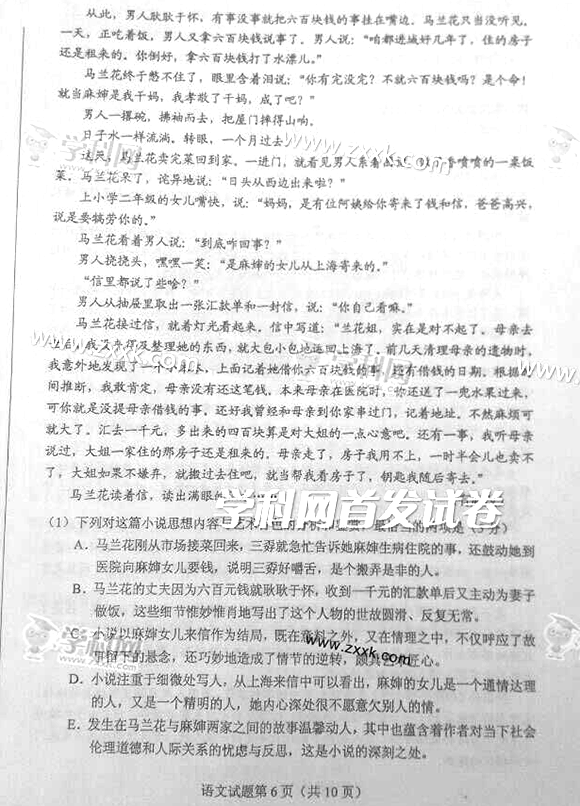 从此，男人耿耿于怀，有事没事就把六百块钱的事挂在嘴边。马兰花只当没听见。
一天，正吃着饭，男人又拿六百块钱说事了。男人说：“咱都进城好几年了，住的房子
还是租来的。你倒好，拿六百块钱打了水漂儿。”
马兰花终于憋不住了，眼里含着泪说：“你有完没完？不就六百块钱吗？是个命！
就当麻婶是我干妈，我孝敬了干妈，成了吧？”
男人一撂碗，拂袖而去，把屋门摔得山响。
日子水一样流淌。转眼，一个月过去
这天，马兰花卖完菜回到家。一进门，就看见男人系着 喷喷的一桌饭
菜。马兰花呆了，诧异地说：“日头从西边出来啦？”
上小学二年级的女儿嘴快，说：“妈妈，是有位阿姨给你寄来了钱和信，爸爸高兴，
说是要犒劳你的。”
马兰花看着男人说：“到底咋回事？”
男人挠挠头，嘿嘿一笑：“是麻婶的女儿从上海寄来的。”
“信里都说了些啥？”
男人从抽屉里取出一张汇款单和一封信，说：“你自己看嘛。”
马兰花接过信，就着灯光看起来。信中写道：“兰花姐，实在是对不起了。母亲去
后，我没来得及整理她的东西，就大包小包地运回上海了。前几天清理母亲的遗物时，
我意外地发现了一个小本，上面记着她借你六百块钱的事，还有借钱的日期。根据
间推断，我敢肯定，母亲没有还这笔钱。本来母亲在医院时，你还送了一兜水果过来，
可你就是没提母亲借钱的事。还好我曾经和母亲到你家串过门，记着地址。不然麻烦可
就大了。汇去一千元，多出来的四百块算是对大姐的一点心意吧。还有一事，我听母亲
说过，大姐一家住的那房子还是租来的。母亲走了，房子我用不上，一时半会儿也卖不
了，大姐如果不嫌弃，就搬过去住吧，就当帮我看房子了，钥匙我随后寄去。”
马兰花读着信，读出满眼的
学科网首发试卷
（1）下列对这篇小说思想内容 两项是（5分）
A．马兰花刚从市场接菜回来，三孬就急忙告诉她麻婶生病住院的事，还鼓动她到
医院向麻婶女儿要钱，说明三孬好嚼舌，是个搬弄是非的人。
B．马兰花的丈夫因为六百元钱就耿耿于怀，收到一千元的汇款单后又主动为妻子
做饭，这些细节惟妙惟肖地写出了这个人物的世故圆滑、反复无常。
C．小说以麻婶女儿来信作为结局，既在意料之外，又在情理之中，不仅呼应了故
事情节上的悬念，还巧妙地造成了情节的逆转，颇具 匠心。
D．小说注重于细微处写人，从上海来信中可以看出，麻婶的女儿是一个通情达理
的人，又是一个精明的人，她内心深处很不愿意欠别人的情。
E．发生在马兰花与麻婶两家之间的故事温馨动人，其中也蕴含着作者对当下社会
伦理道德和人际关系的忧虑与反思，这是小说的深刻之处。
语文试题第 6 页（共 10 页）
学科网
www.zxxk.com